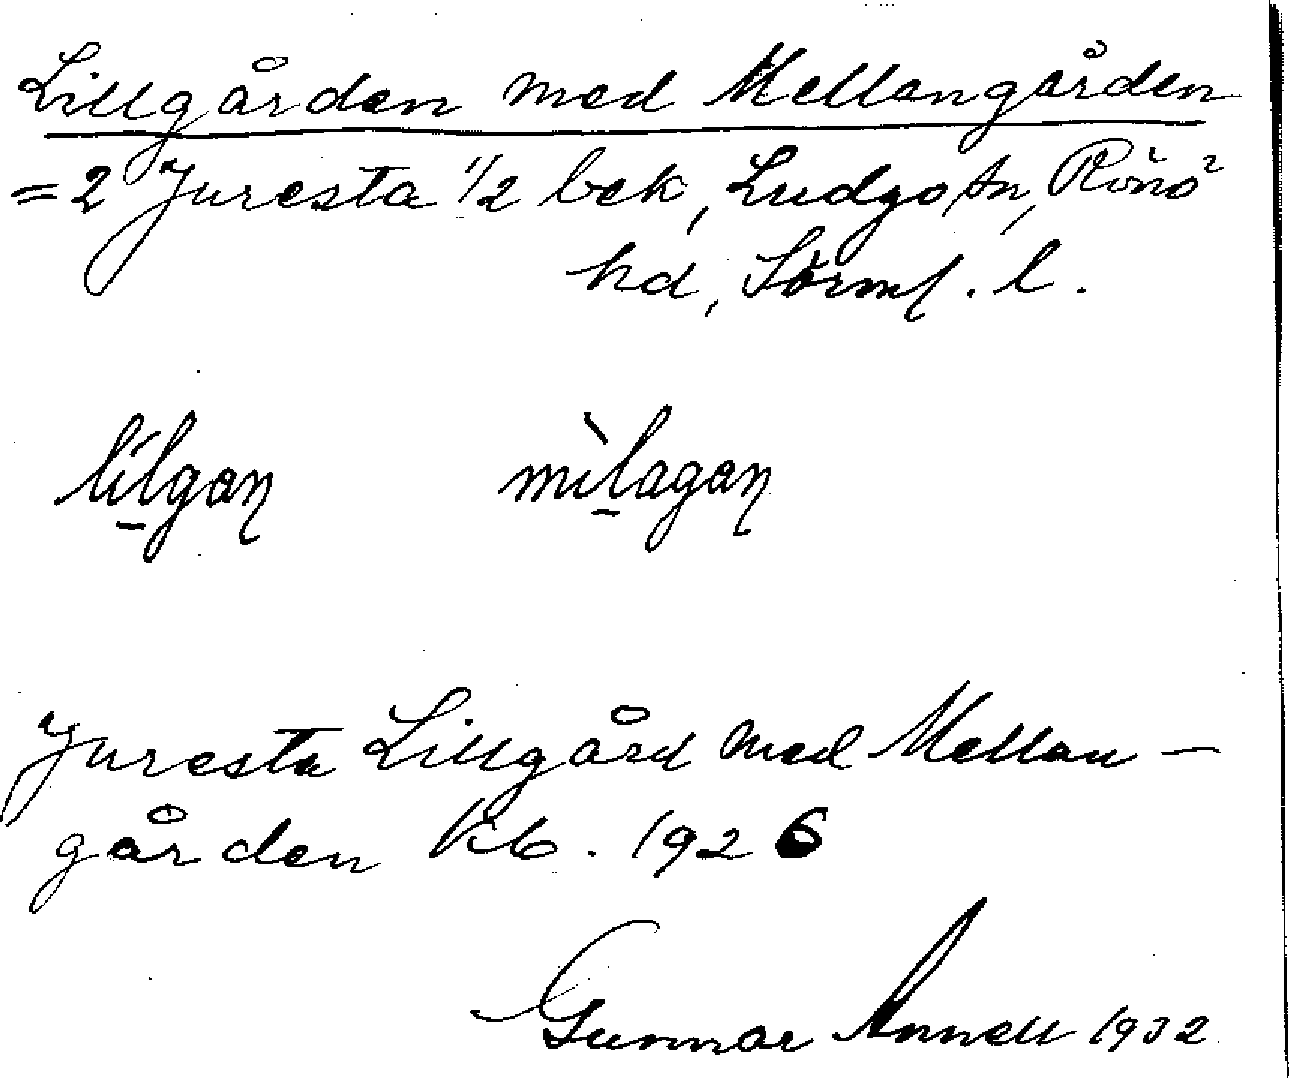 Lillgården med Mellangården
= 2 Juresta 1/2 bek, Ludgo sn, Rönö
hd, Sörml. l.
lilgaɳ milagaɳ
Juresta Lillgård med Mellan-
gården kb. 1926
Gunnar Annell 1932